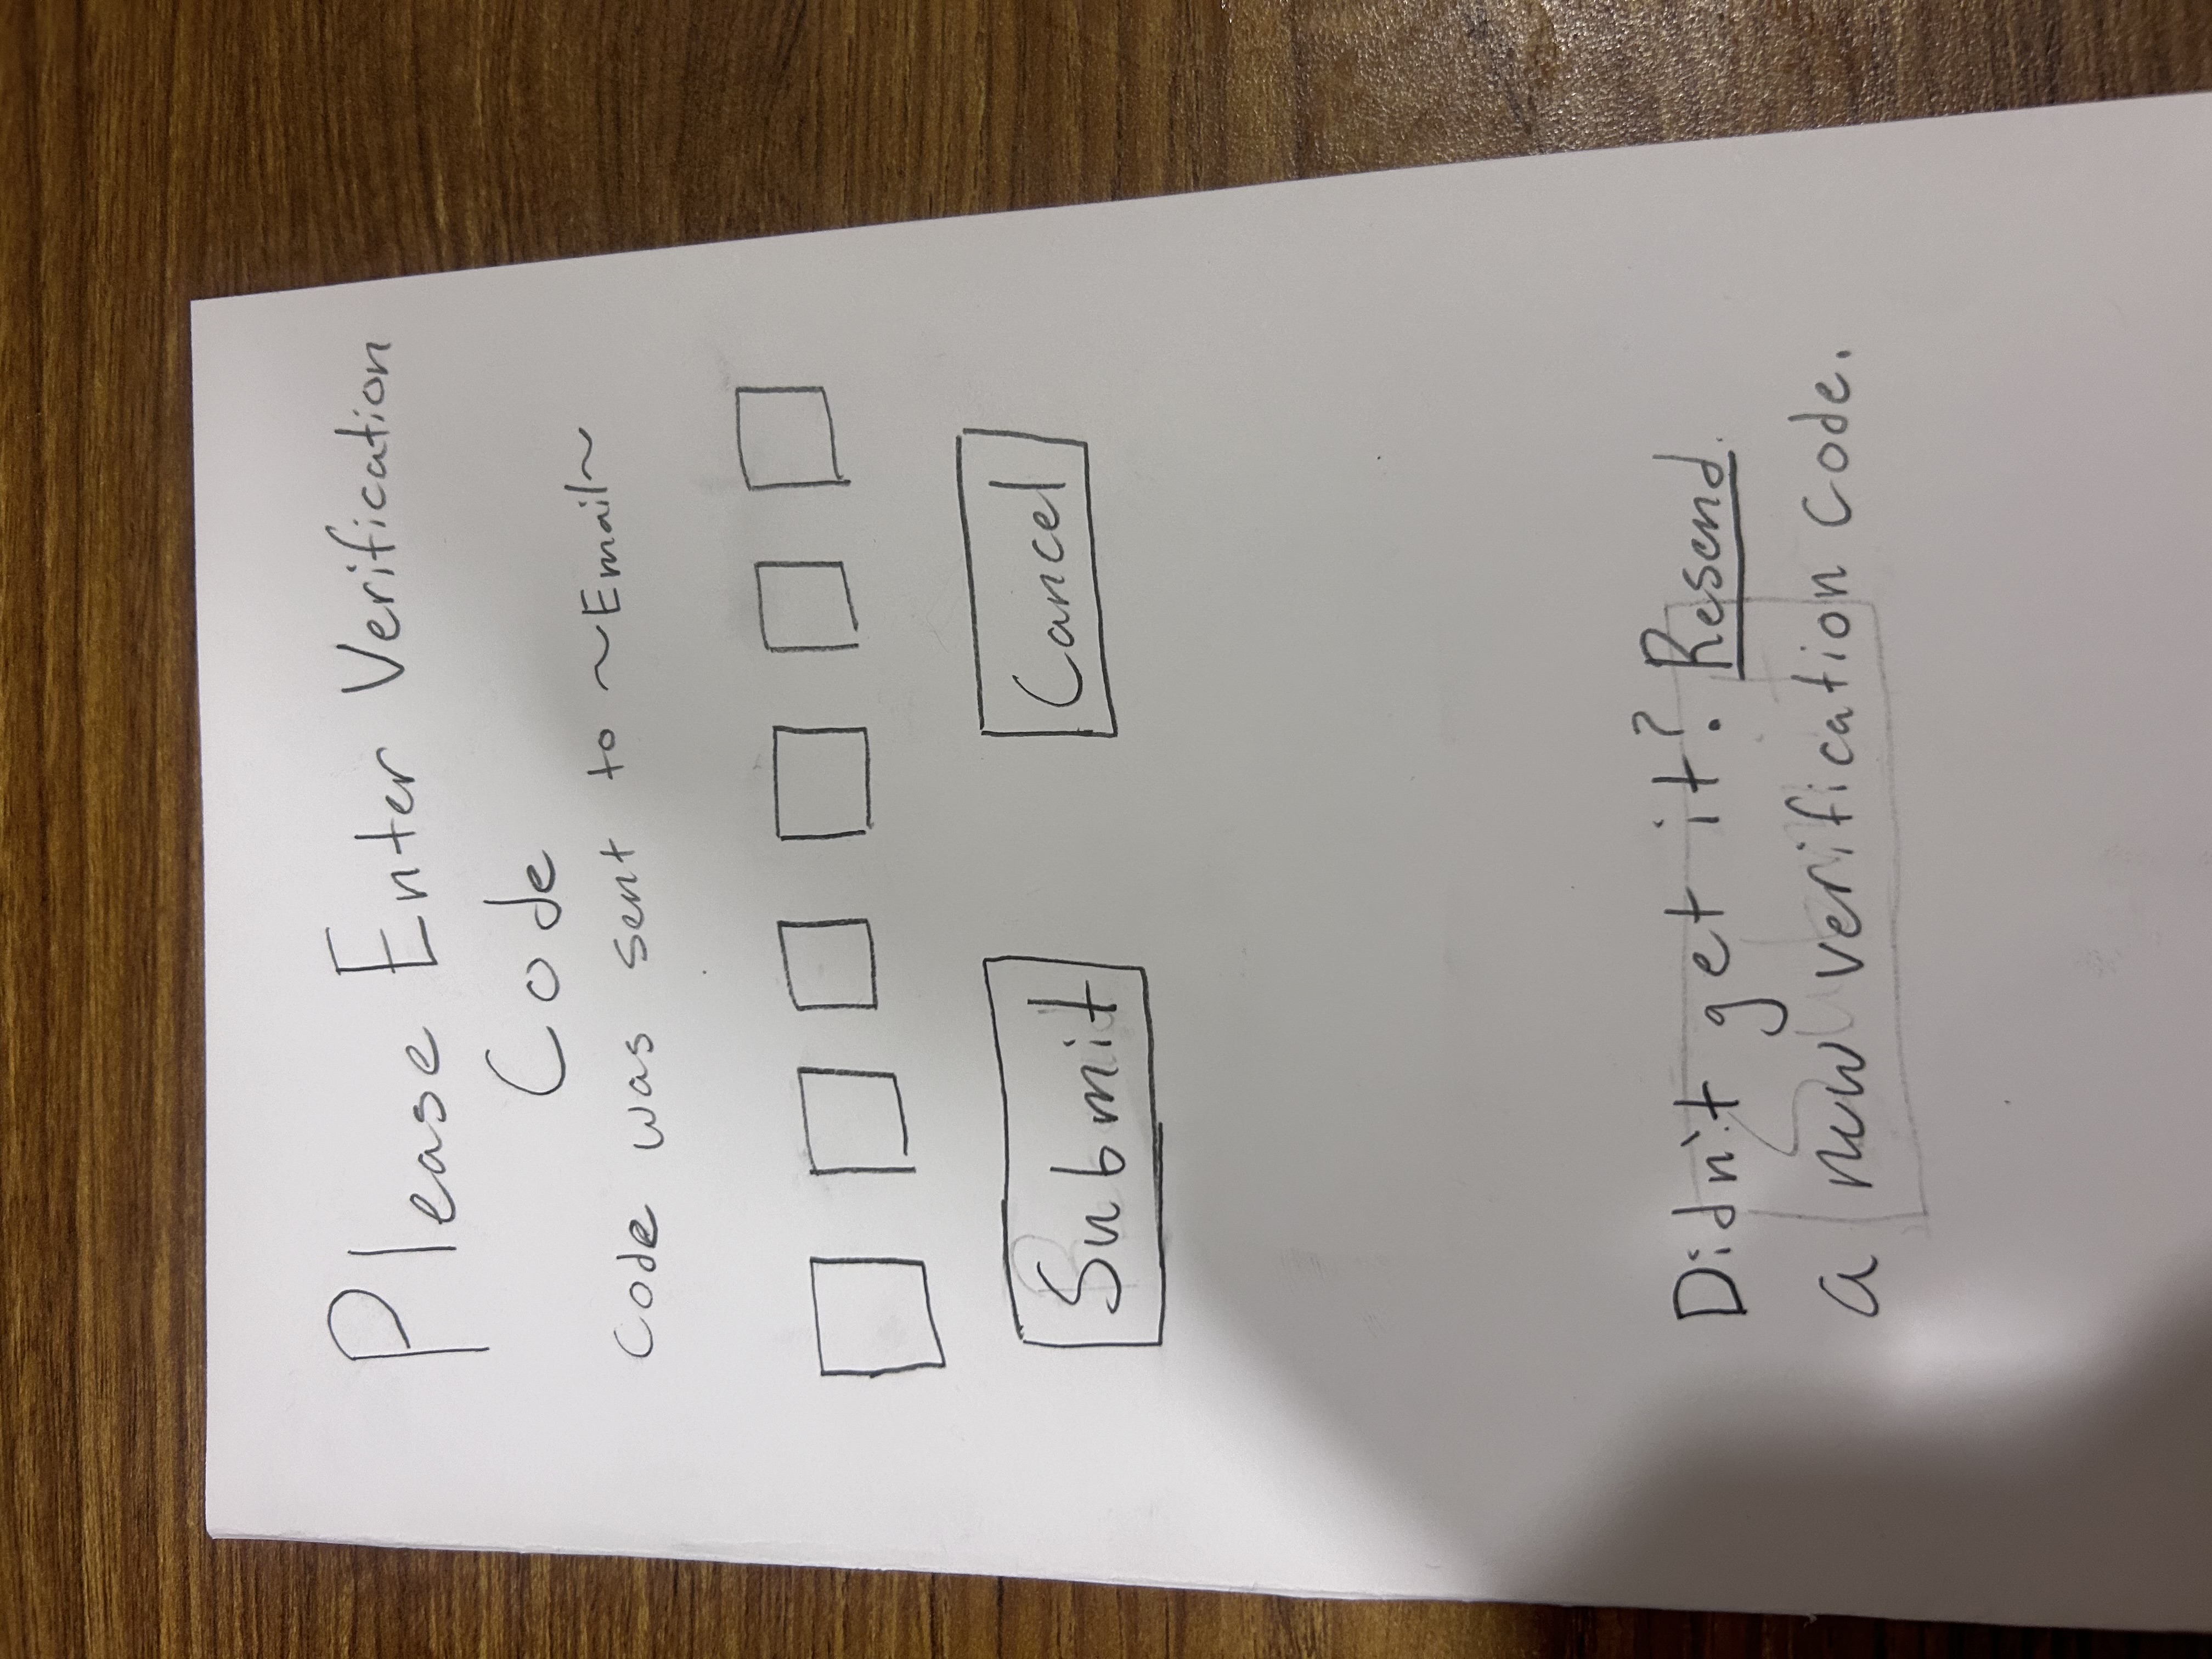 Please Enter Verification
Code
Code was sent to ~Email~
Submit
Cancel
Didn't get it? Resend
a new verification code.